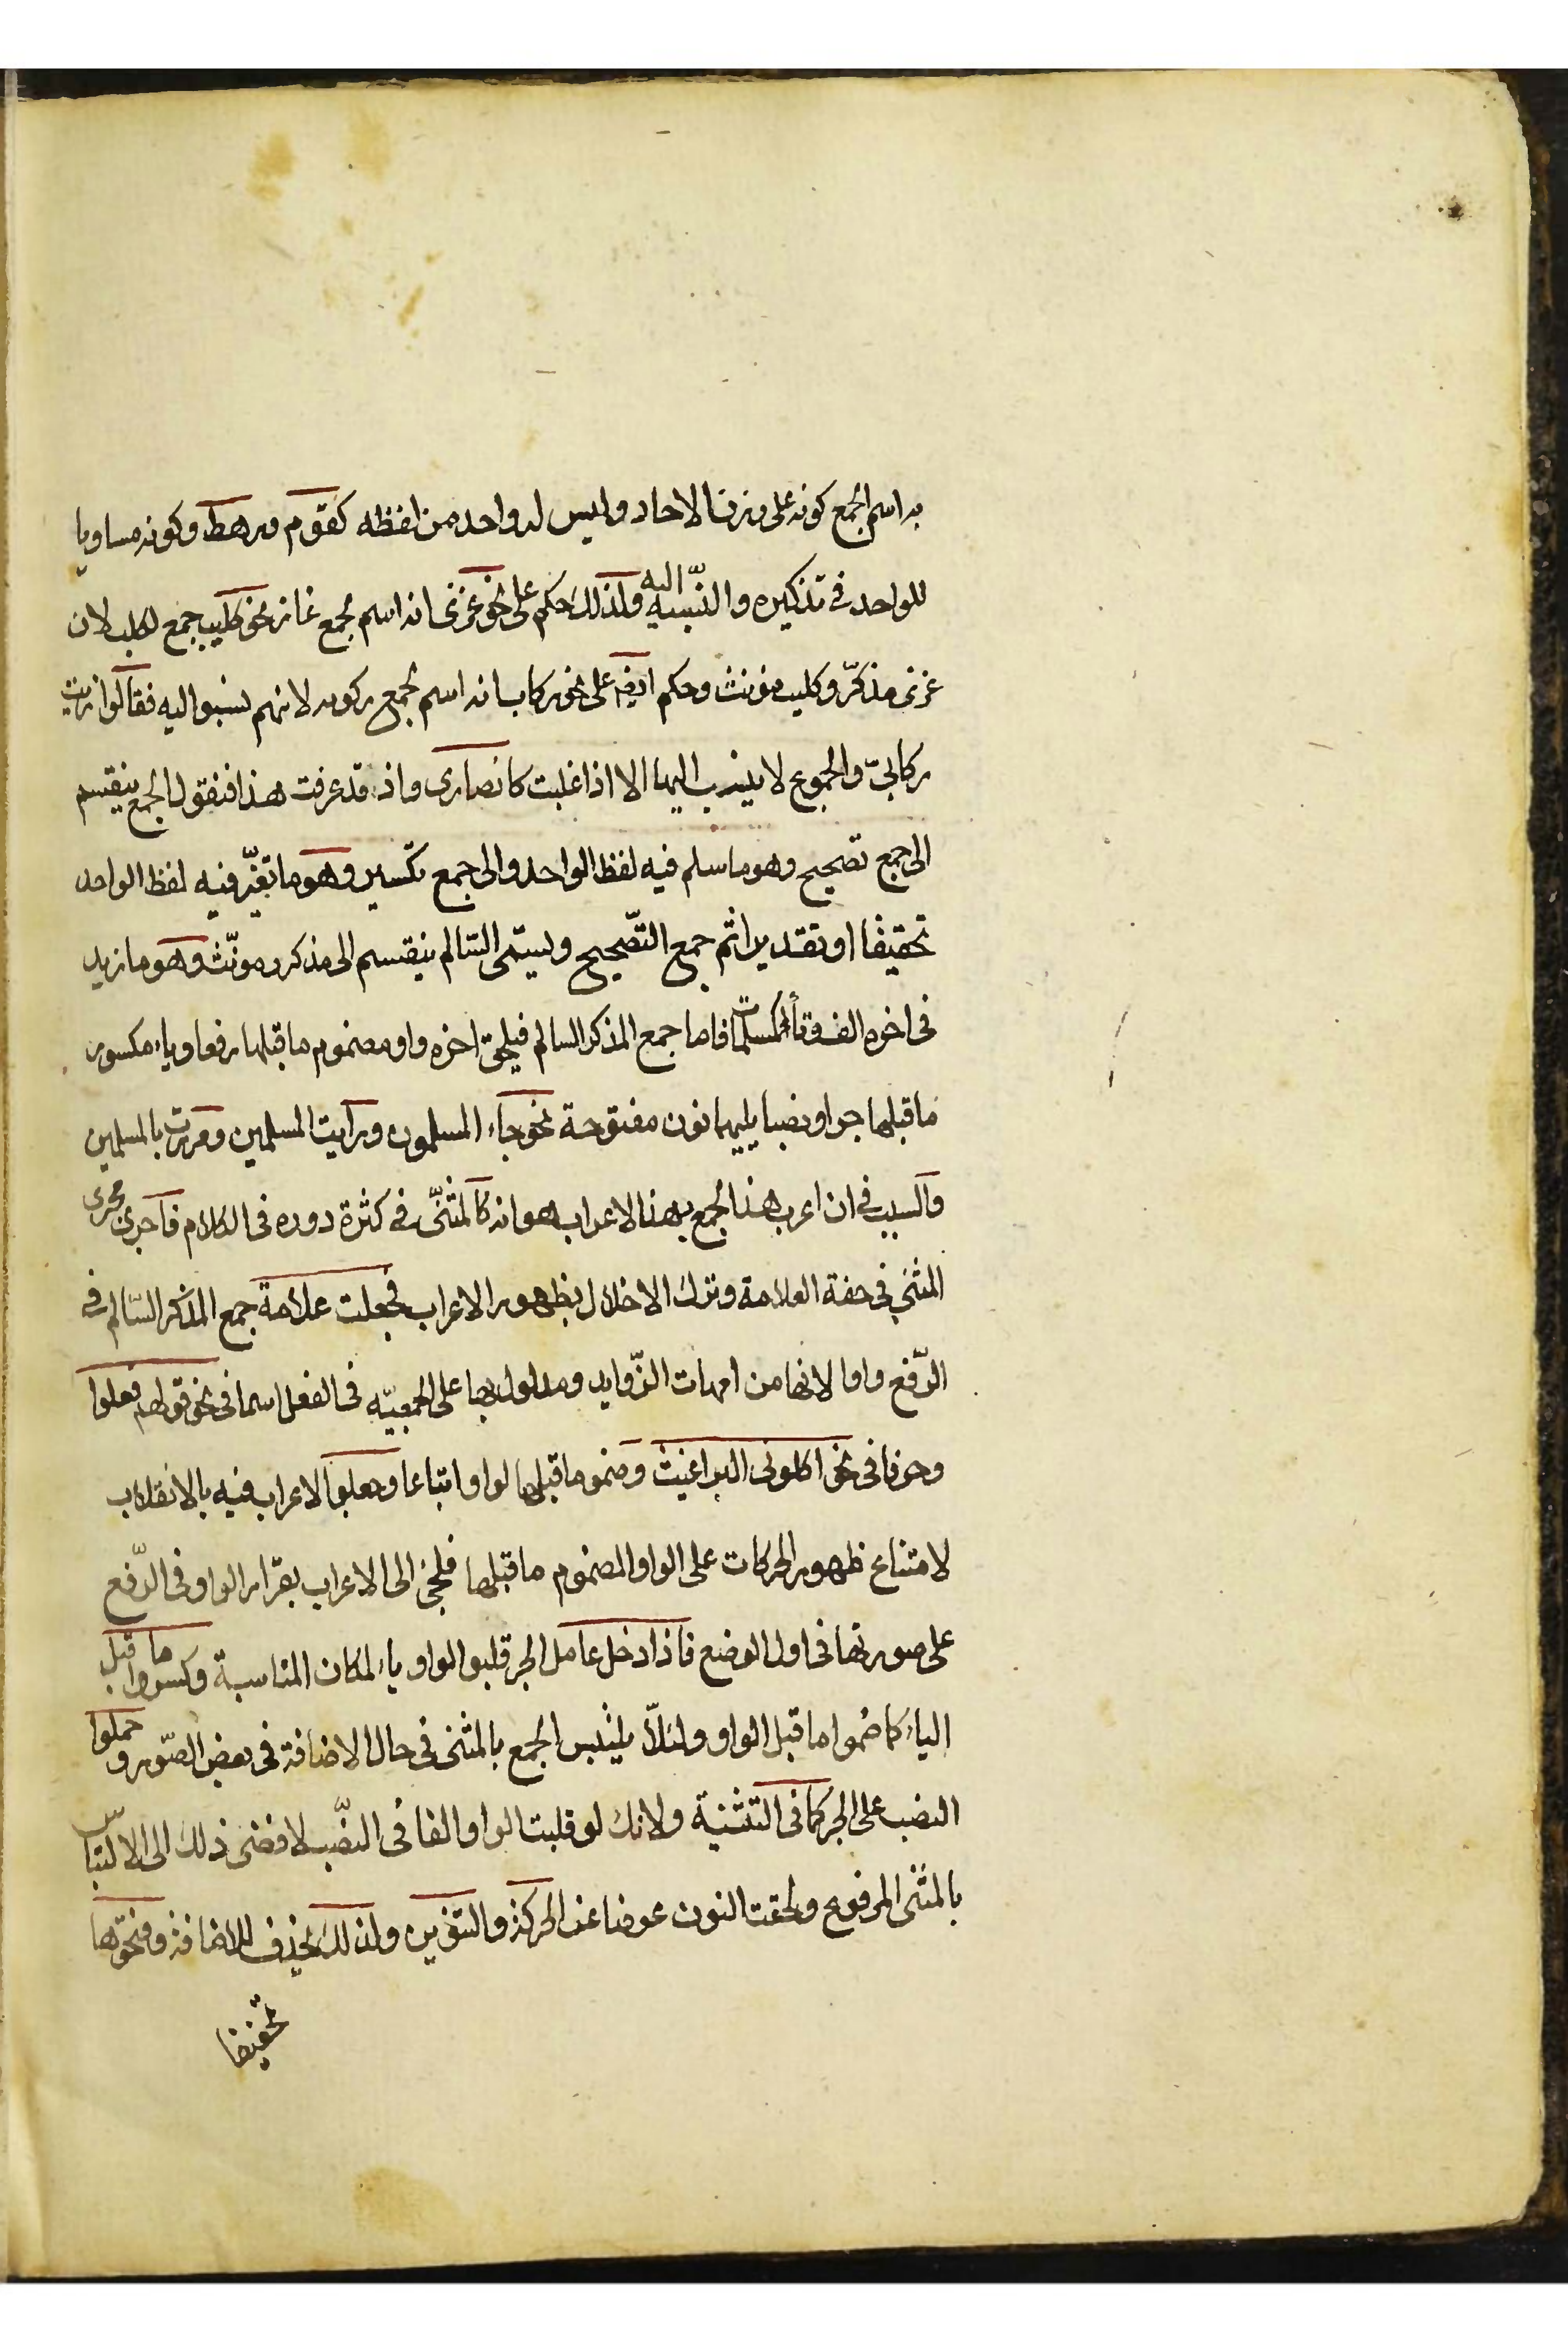 به اسم الجمع كونه على وزن الاحاد وليس له واحد من لفظه كقوم ورهط وكونه مساويا
للواحد في تذكيره والنسبه اليه ولذلك حكم على نحو غزى انه اسم لجمع غاز نحو كليب جمع لكلب لان
غزى مذكر وكليب مؤنث وحكم ايضا على نحو ركاب انه اسم لجمع ركوبه لانهم نسبوا اليه فقالوا زيت
ركابي والجموع لا ينسب اليها الا اذا غلبت كانصارى واذ قد عرفت هذا فنقول الجمع ينقسم
الى جمع تصحيح وهو ما سلم فيه لفظ الواحد والى جمع تكسير وهو ما تغير فيه لفظ الواحد
تحقيقا او تقديرا ثم جمع التصحيح ويسمى السالم ينقسم الى مذكر ومونث وهو ما زيد
فى اخره الف وتاء كمسلمات فاما جمع المذكر السالم فيلحق اخره واو مضموم ما قبلها رفعا وياء مكسور
ما قبلها جرا ونصبا يليهما نون مفتوحة نحو جاء المسلمون ورايت المسلمين ومررت بالمسلمين
والسبب في ان اعرب هذا الجمع بهذا الاعراب هو انه كالمثنى في كثرة دوره فى الكلام فاجرى مجرى
المثنى فى خفة العلامة وترك الاخلال بظهور الاعراب فجعلت علامة جمع المذكر السالم في
الرفع واوا لانها من امهات الزوايد ومدلول بها على الجمعيه فى الفعل اسما فى نحو قولهم فعلوا
وحرفا فى نحو اكلونى البراغيث وضموا ما قبلها لواو اتباعا وجعلوا الاعراب فيه بالانقلاب
لامتناع ظهور الحركات على الواو المضموم ما قبلها فلجئ الى الاعراب بقرار الواو فى الرفع
على صورتها فى اول الوضع فاذا دخل عامل الجر قلبوا الواو ياء لمكان المناسبة وكسروا ما قبل
الياء كما ضموا ما قبل الواو ولئلا يلتبس الجمع بالمثنى فى حال الاضافة فى بعض الصور وحملوا
النصب على الجر كما فى التثنية ولانك لو قلبت الواو الفا فى النصب لافضى ذلك الى الالتباس
بالمثنى المرفوع ولحقت النون عوضا عن الحركة والتنوين ولذلك تحذف للاضافة وفتحوها
تخفيفا